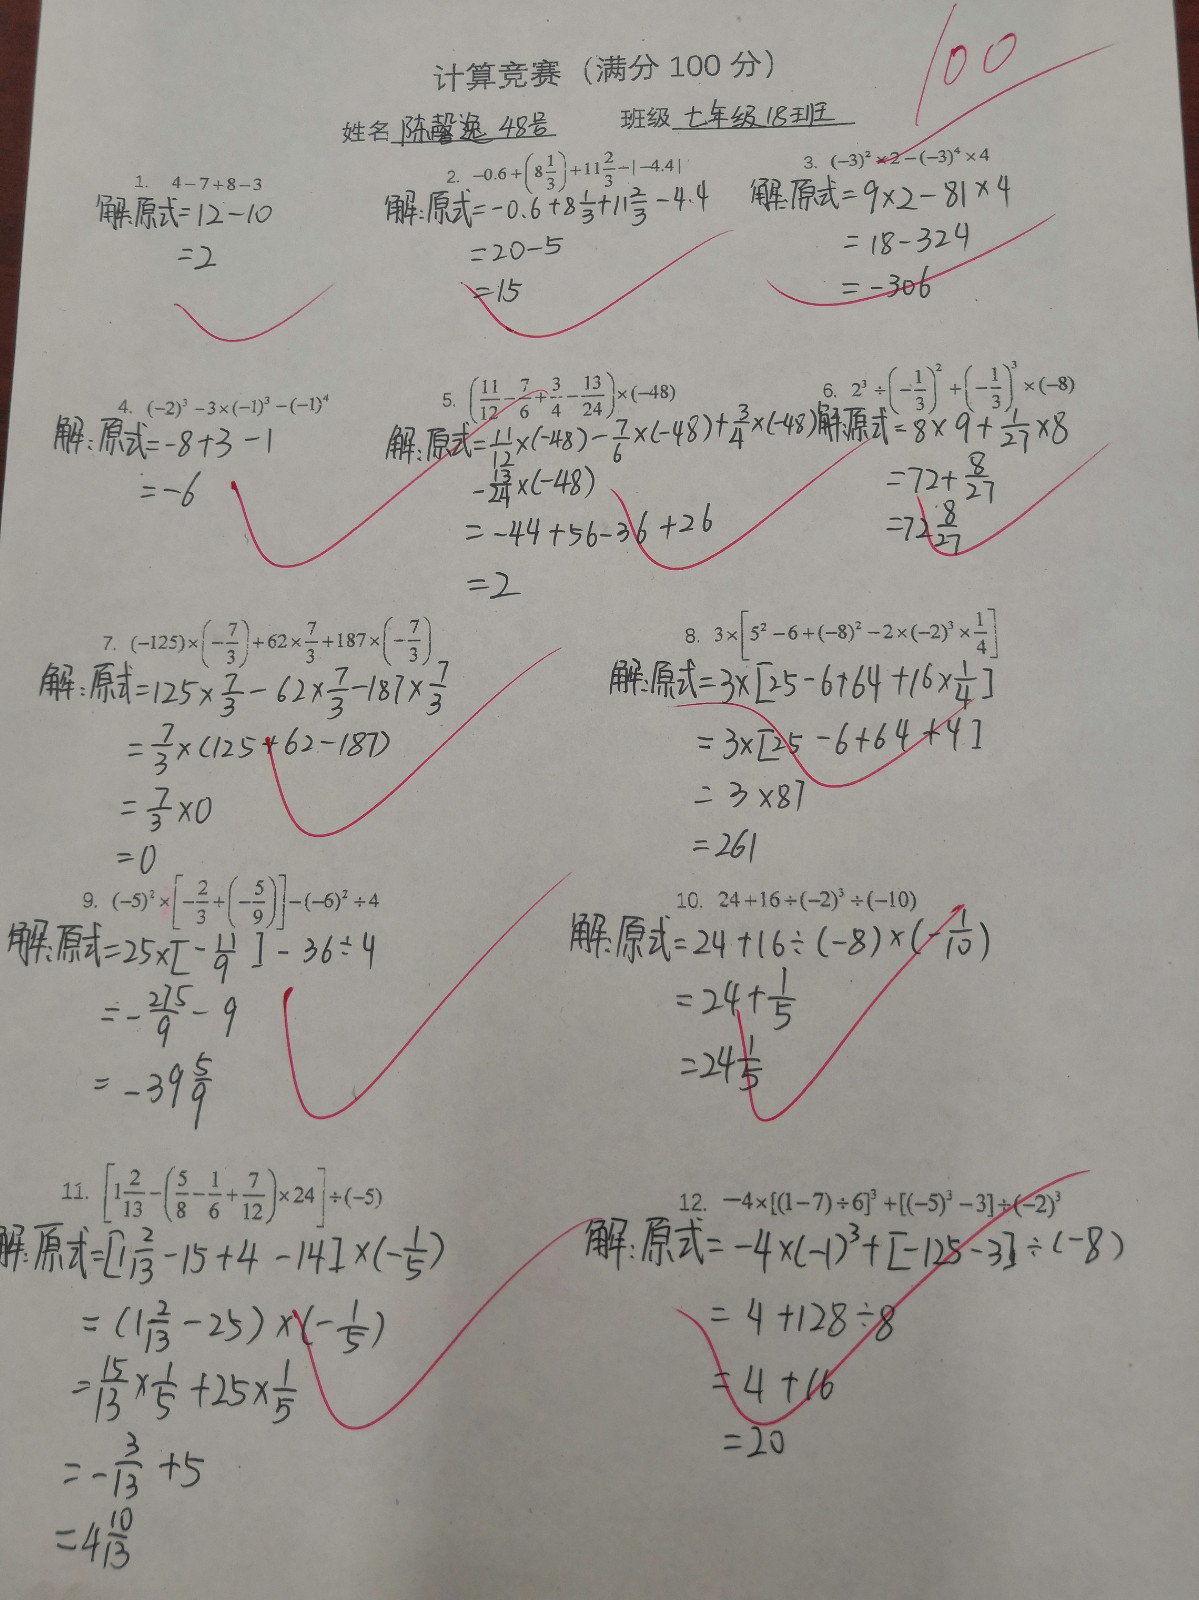 100
计算竞赛（满分 100 分）
姓名 陈馨逸 48号 班级 七年级18班
1. 4－7＋8－3
解:原式=12-10
=2
2. －0.6＋(8 1/3)＋11 2/3－|－4.4|
解:原式=-0.6+8 1/3+11 2/3-4.4
=20-5
=15
3. (－3)²×2－(－3)⁴×4
解:原式=9×2-81×4
=18-324
=-306
4. (－2)³－3×(－1)³－(－1)⁴
解:原式=-8+3-1
=-6
5. (11/12－7/6＋3/4－13/24)×(－48)
解:原式=11/12×(-48)-7/6×(-48)+3/4×(-48)
-13/24×(-48)
=-44+56-36+26
=2
6. 2³÷(－1/3)²＋(－1/3)³×(－8)
解:原式=8×9+1/27×8
=72+8/27
=72 8/27
7. (－125)×(－7/3)＋62×7/3＋187×(－7/3)
解:原式=125×7/3-62×7/3-187×7/3
=7/3×(125+62-187)
=7/3×0
=0
8. 3×[5²－6＋(－8)²－2×(－2)³×1/4]
解:原式=3×[25-6+64+16×1/4]
=3×[25-6+64+4]
=3×87
=261
9. (－5)²×[－2/3＋(－5/9)]－(－6)²÷4
解:原式=25×[-11/9]-36÷4
=-275/9-9
=-39 5/9
10. 24＋16÷(－2)³÷(－10)
解:原式=24+16÷(-8)×(-1/10)
=24+1/5
=24 1/5
11. [1 2/13－(5/8－1/6＋7/12)×24]÷(－5)
解:原式=[1 2/13-15+4-14]×(-1/5)
=(1 2/13-25)×(-1/5)
=15/13×1/5+25×1/5
=-3/13+5
=4 10/13
12. －4×[(1－7)÷6]³＋[(－5)³－3]÷(－2)³
解:原式=-4×(-1)³+[-125-3]÷(-8)
=4+128÷8
=4+16
=20